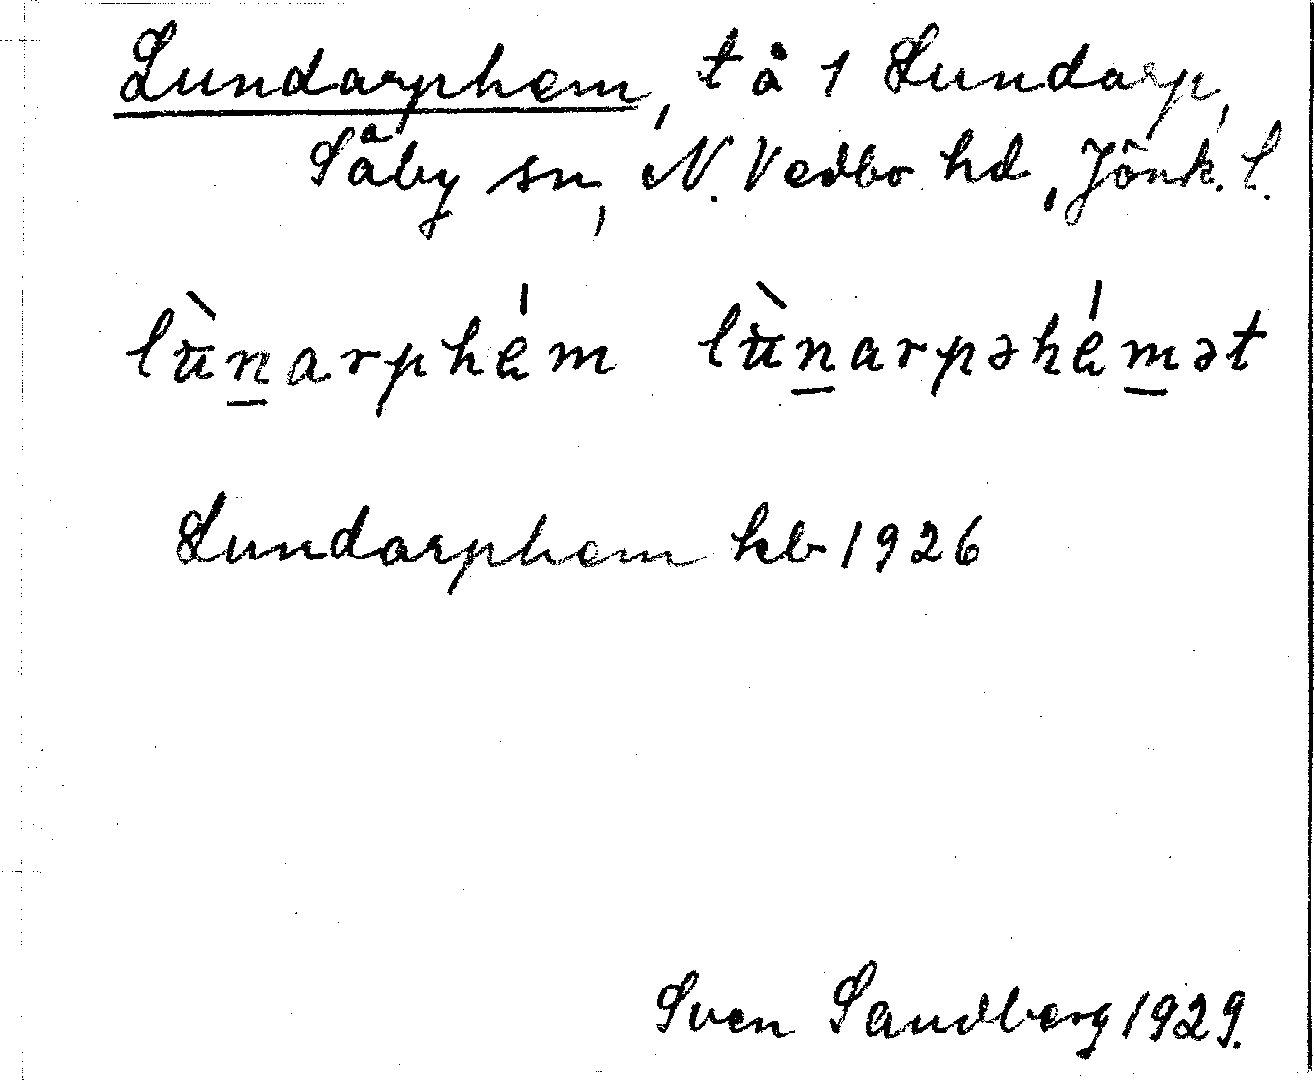 Lundarphem, t å 1 Lundarp,
Säby sn, N. Vedbo hd, Jönk. l.
lùn̲arphém lùn̲arpəhém̲ət
Lundarphem kb 1926
Sven Sandberg 1929.